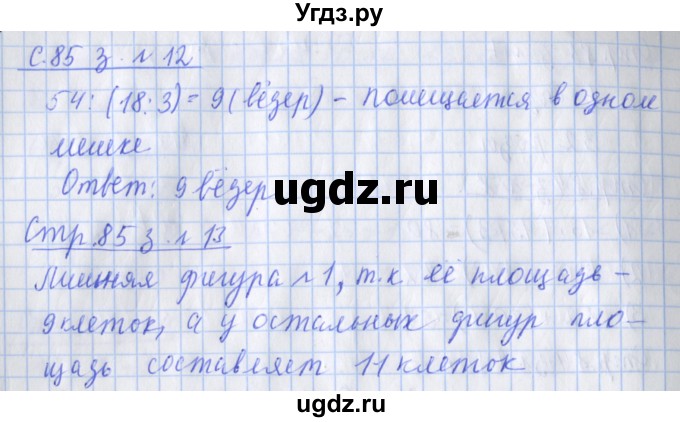 Угдз.ру
С. 85 з. № 12
54 : (18 : 3) = 9 (вёдер) - помещается в одном
мешке
Ответ: 9 вёдер
ugdz.ru
Стр. 85 з. № 13
Лишняя фигура №1, т.к её площадь -
9 клеток, а у остальных фигур пло-
щадь составляет 11 клеток
ugdz.ru